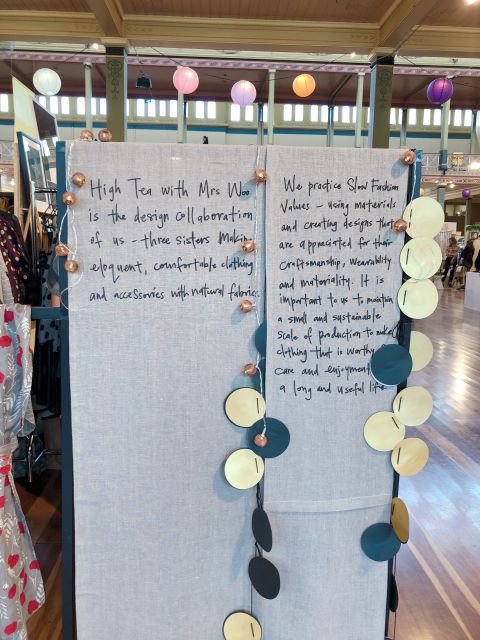 High Tea with Mrs Woo
is the design collaboration
of us - three sisters Making
eloquent, comfortable clothing
and accessories with natural fabrics.
We practice Slow Fashion
Values - using materials
and creating designs that
are appreciated for their
craftsmanship, wearability
and materiality. It is
important to us to maintain
a small and sustainable
scale of production to make
clothing that is worthy
care and enjoyment
a long and useful life.